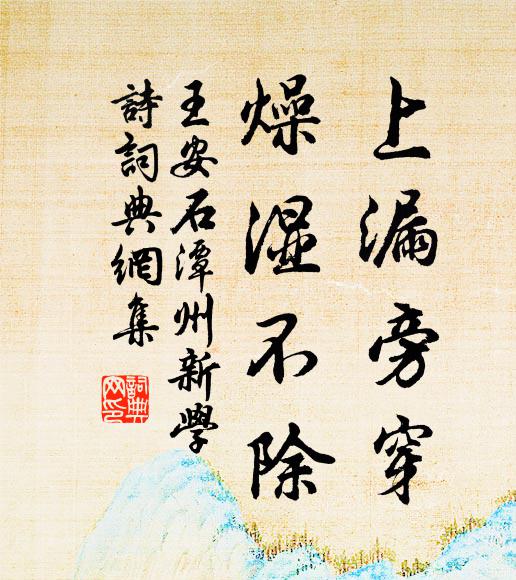 上漏旁穿
燥湿不除
王安石潭州新學
詩詞典網集
詞典
网印